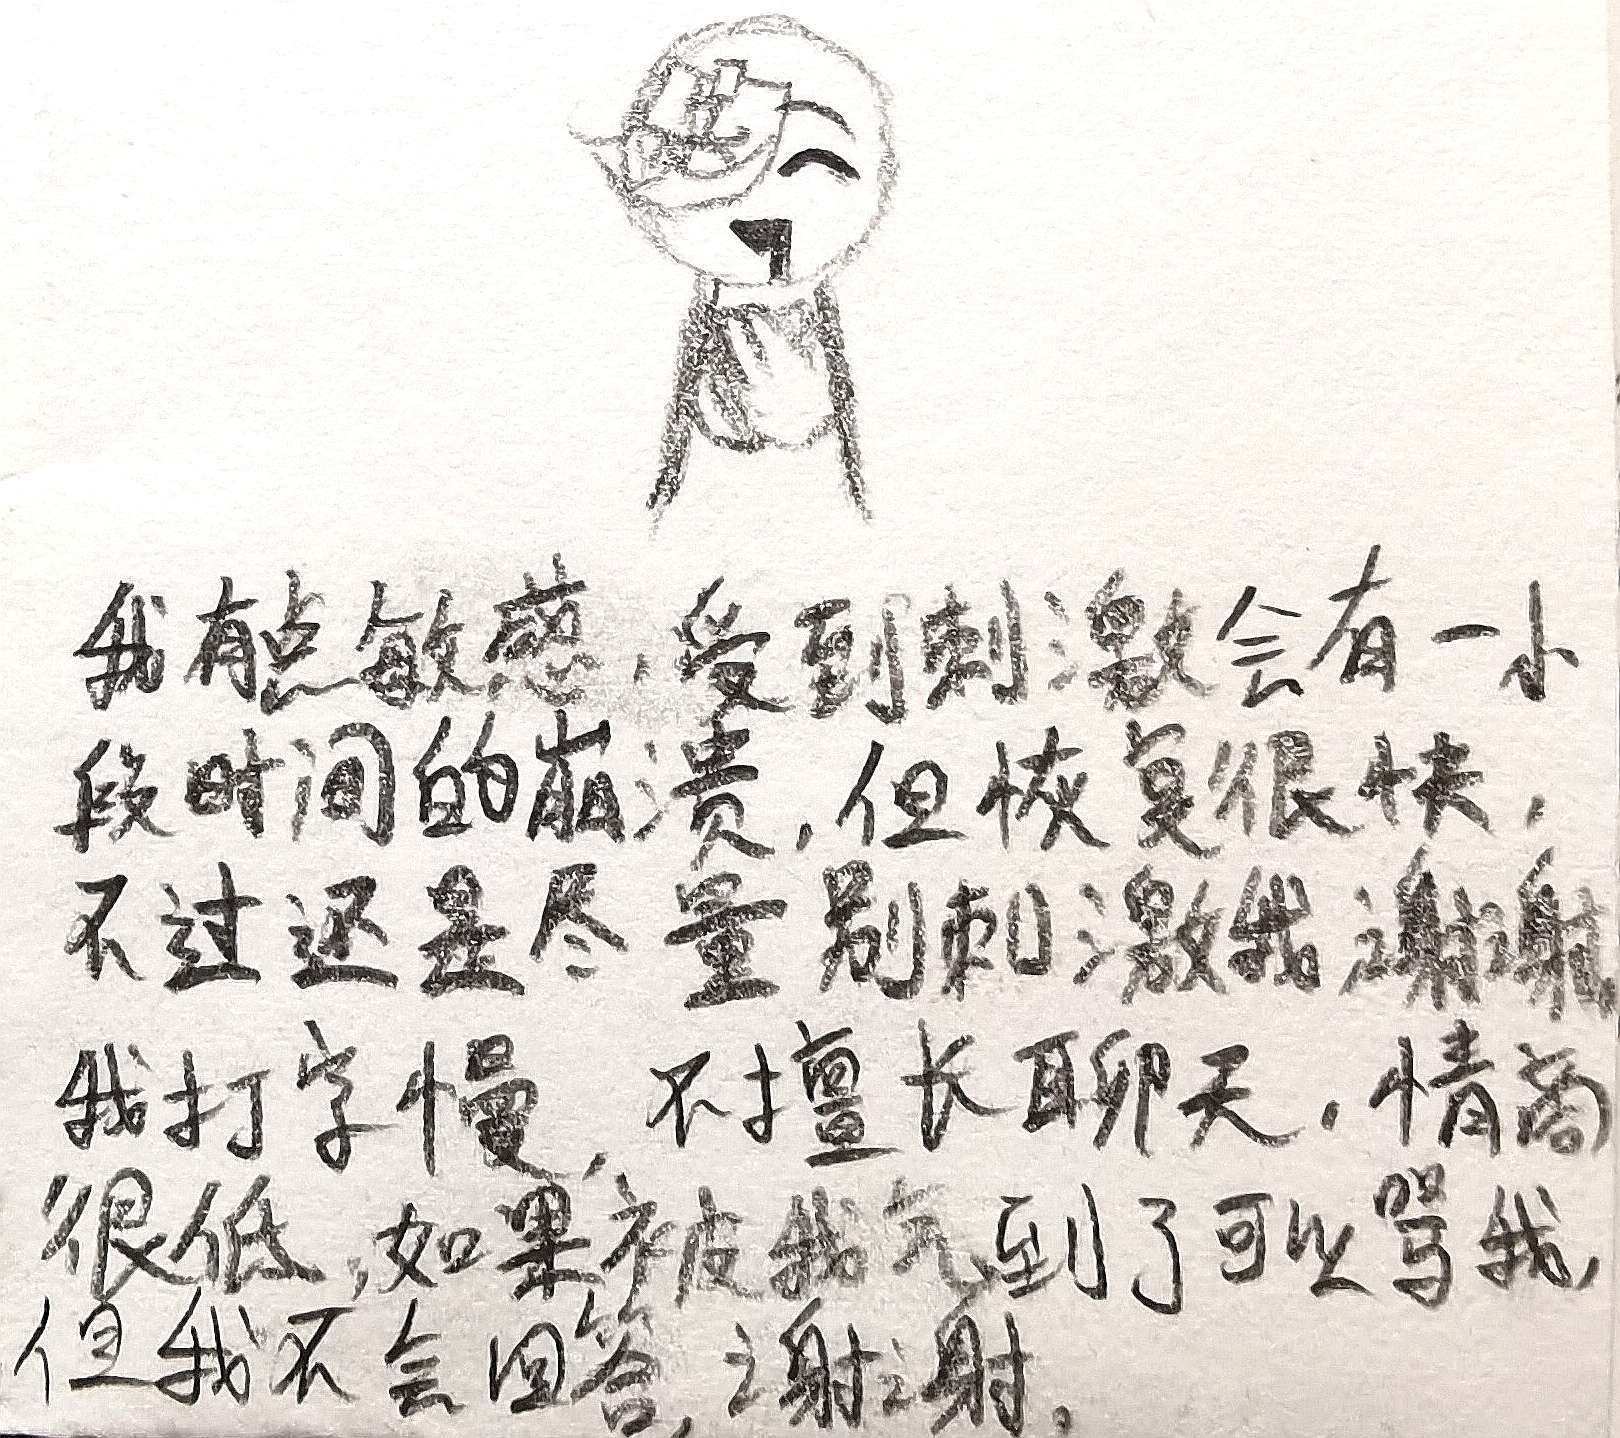 我有点敏感，受到刺激会有一小
段时间的崩溃，但恢复很快，
不过还是尽量别刺激我谢谢
我打字慢，不擅长聊天，情商
很低，如果被我气到了可以骂我，
但我不会回答，谢谢。